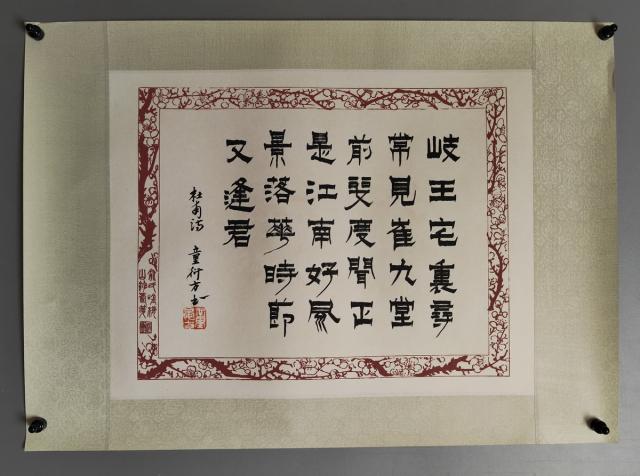 岐王宅裏尋
常見崔九堂
前幾度聞正
是江南好風
景落華時節
又逢君
杜甫詩 童衍方書